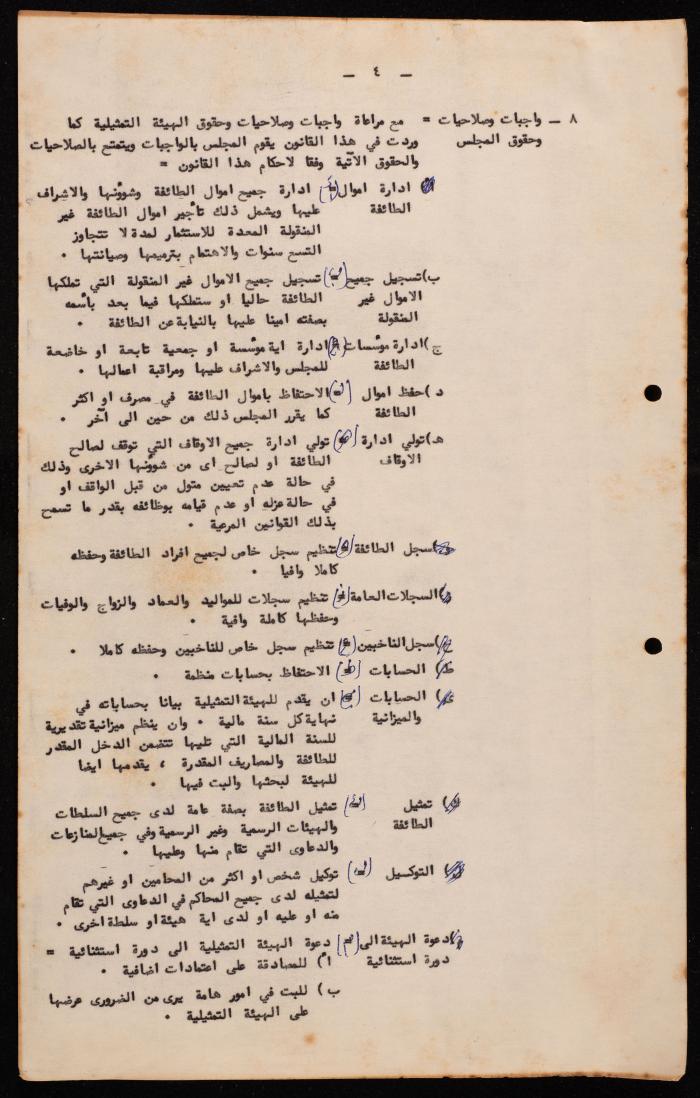 — ٤ —
٨ — واجبات وصلاحيات = مع مراعاة واجبات وصلاحيات وحقوق الهيئة التمثيلية كما
وحقوق المجلس وردت في هذا القانون يقوم المجلس بالواجبات ويتمتع بالصلاحيات
والحقوق الآتية وفقا لاحكام هذا القانون =
ادارة اموال (أ) ادارة جميع اموال الطائفة وشؤونها والاشراف
الطائفة عليها ويشمل ذلك تأجير اموال الطائفة غير
المنقولة المعدة للاستثمار لمدة لا تتجاوز
التسع سنوات والاهتمام بترميمها وصيانتها .
ب) تسجيل جميع (ب) تسجيل جميع الاموال غير المنقولة التي تملكها
الاموال غير الطائفة حاليا او ستملكها فيما بعد باسمه
المنقولة بصفته امينا عليها بالنيابة عن الطائفة .
ج) ادارة مؤسسات (ج) ادارة اية مؤسسة او جمعية تابعة او خاضعة
الطائفة للمجلس والاشراف عليها ومراقبة اعمالها .
د) حفظ اموال (د) الاحتفاظ باموال الطائفة في مصرف او اكثر
الطائفة كما يقرر المجلس ذلك من حين الى آخر .
هـ) تولي ادارة (هـ) تولي ادارة جميع الاوقاف التي توقف لصالح
الاوقاف الطائفة او لصالح اى من شؤونها الاخرى وذلك
في حالة عدم تعيين متول من قبل الواقف او
في حالة عزله او عدم قيامه بوظائفه بقدر ما تسمح
بذلك القوانين المرعية .
و) سجل الطائفة (و) تنظيم سجل خاص لجميع افراد الطائفة وحفظه
كاملا وافيا .
ز) السجلات العامة (ز) تنظيم سجلات للمواليد والعماد والزواج والوفيات
وحفظها كاملة وافية .
ح) سجل الناخبين (ح) تنظيم سجل خاص للناخبين وحفظه كاملا .
ط) الحسابات (ط) الاحتفاظ بحسابات منظمة .
ى) الحسابات (ي) ان يقدم للهيئة التمثيلية بيانا بحساباته في
والميزانية نهاية كل سنة مالية . وان ينظم ميزانية تقديرية
للسنة المالية التي تليها تتضمن الدخل المقدر
للطائفة والمصاريف المقدرة ، يقدمها ايضا
للهيئة لبحثها والبت فيها .
) تمثيل (ك) تمثيل الطائفة بصفة عامة لدى جميع السلطات
الطائفة والهيئات الرسمية وغير الرسمية وفي جميع المنازعات
والدعاوى التي تقام منها وعليها .
) التوكيل (ل) توكيل شخص او اكثر من المحامين او غيرهم
لتمثيله لدى جميع المحاكم في الدعاوى التي تقام
منه او عليه او لدى اية هيئة او سلطة اخرى .
) دعوة الهيئة الى (م) دعوة الهيئة التمثيلية الى دورة استثنائية =
دورة استثنائية أ) للمصادقة على اعتمادات اضافية .
ب) للبت في امور هامة يرى من الضرورى عرضها
على الهيئة التمثيلية .